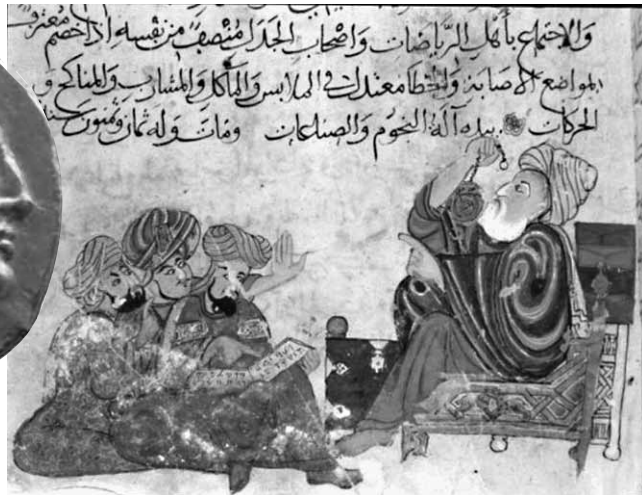 والاجتماع بأهل الرياضات واصحاب الجدل منتصف من نفسه اذا خصم معترف
بمواضع الاصابة والخطا معتدلٌ في الملابس والمآكل والمشارب والمناكح و
الحركات بيده آلة النجوم والصناعات ومات وله ثمان وثمنون سنة